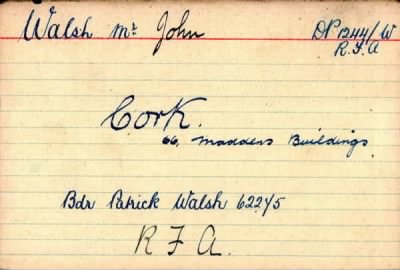 Walsh Mr John DP 1244/W
R.F.A
Cork.
66, Maddens Buildings
Bdr Patrick Walsh 62245
R F A.